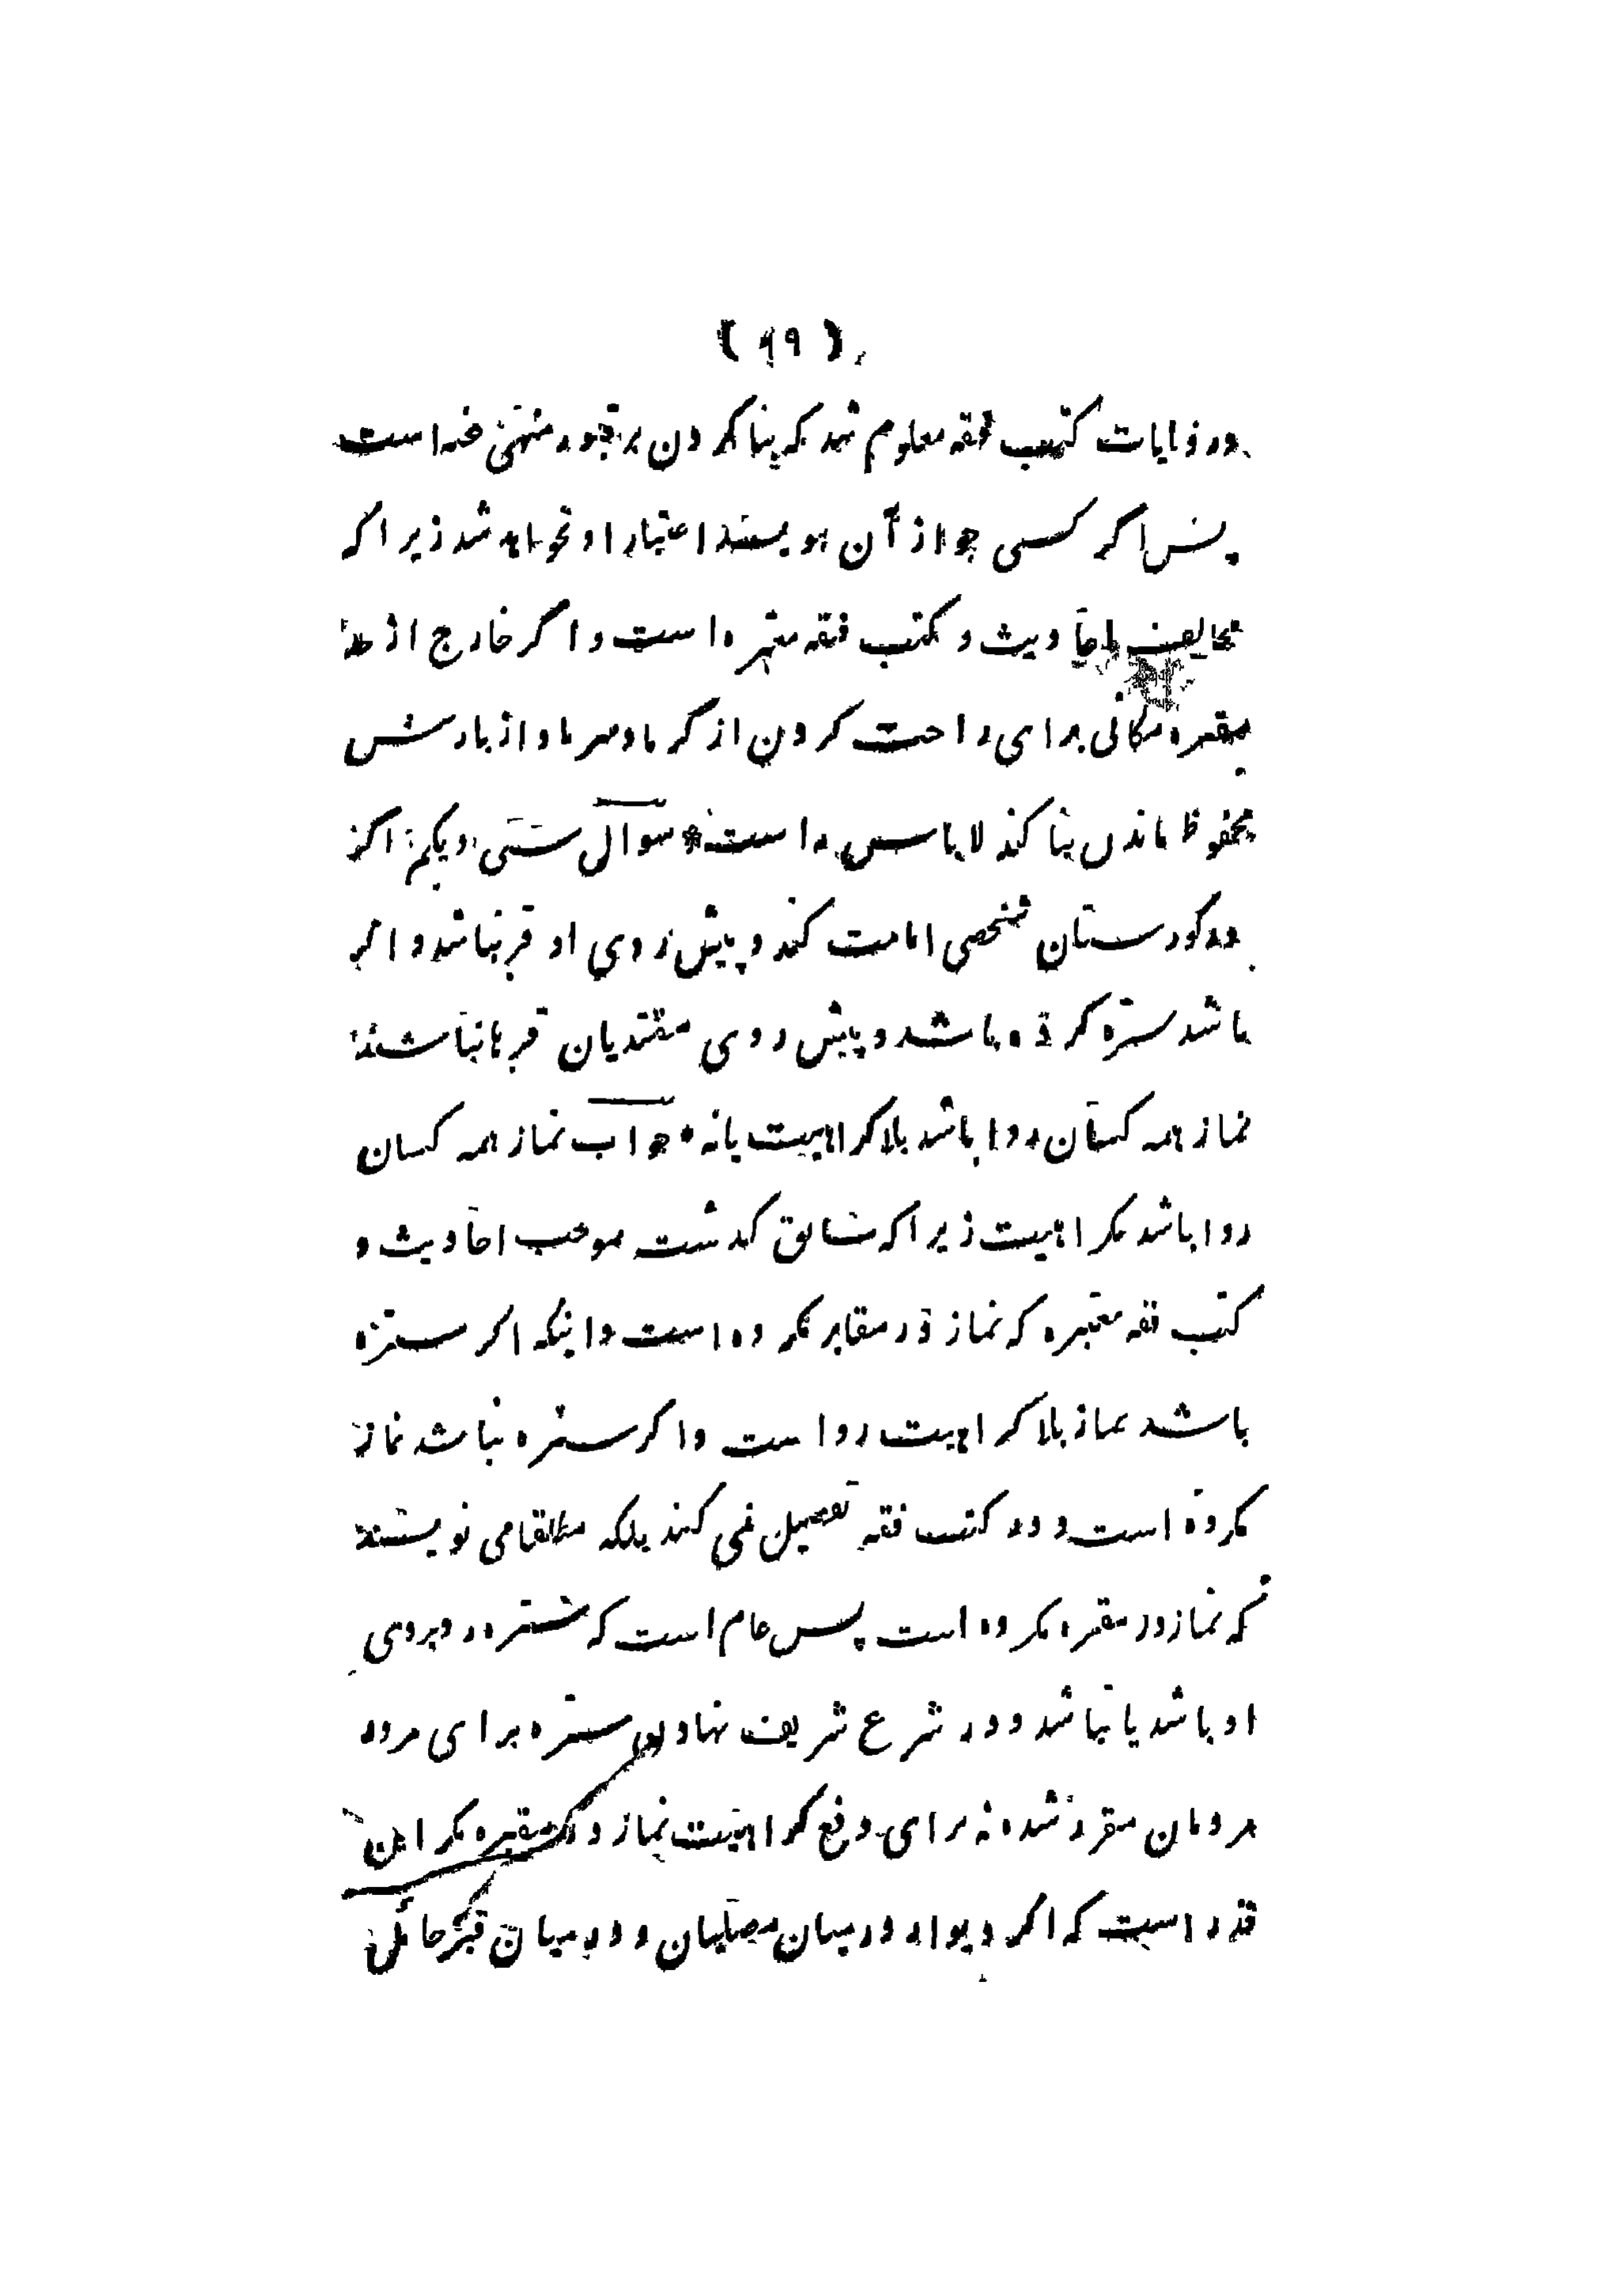 ( ۶۹ )
در روایات کتب فقه معلوم شد که بنا کردن بر قبور منهی عنه است
پس اگر کسی جواز آن بنویسند اعتبار او نخواهد شد زیرا که
مخالف احادیث و کتب فقه معتبره است و اگر خارج از حد
مقبره مکانی برای راحت کردن از گرما و سرما و از بارش
محفوظ ماندن بنا کند لا باس به است * سوال سی و یکم اگر
در گورستان شخصی امامت کند و پیش روی او قبر نباشد و اگر
باشد ستره کرده باشد و پیش روی مقتدیان قبرها نباشند
نماز همه کسان روا باشد بلا کراهیت یا نه * جواب نماز همه کسان
روا باشد بکراهیت زیرا که سابق گذشت موجب احادیث و
کتب فقه معتبره که نماز در مقابر مکروه است و اینکه اگر ستره
باشد نماز بلا کراهیت روا است و اگر ستره نباشد نماز
مکروه است در کتب فقه تفصیل نمی کنند بلکه مطلقا می نویسند
که نماز در مقبره مکروه است پس عام است که ستره روبروی
او باشد یا نباشد و در شرع شریف نهادن ستره برای مرور
مردمان مقرر شده نه برای دفع کراهیت نماز در مقبره مگر این
قدر است که اگر دیوار درمیان مصلیان و درمیان قبر حائل